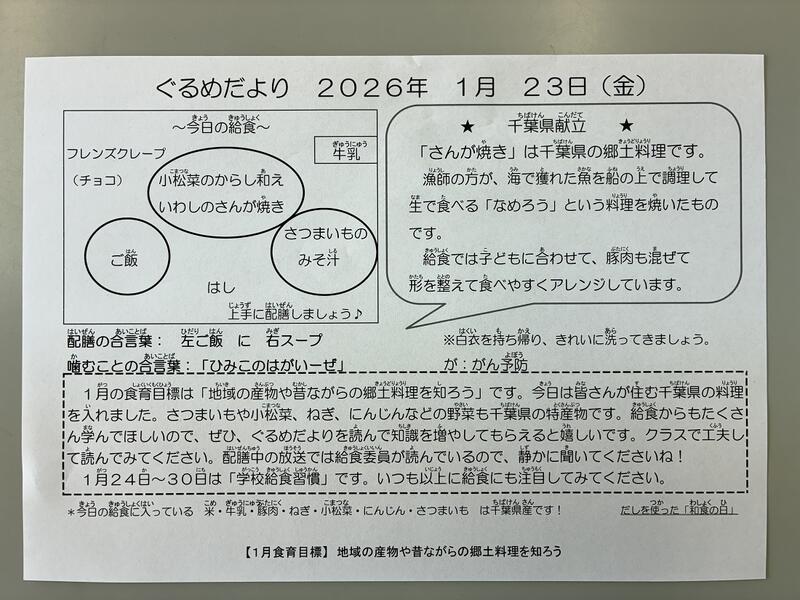 ぐるめだより　2026年　1月　23日（金）
～今日の給食～
フレンズクレープ
（チョコ）
牛乳
小松菜のからし和え
いわしのさんが焼き
ご飯
さつまいもの
みそ汁
はし
上手に配膳しましょう♪
★　千葉県献立　★
「さんが焼き」は千葉県の郷土料理です。
漁師の方が、海で獲れた魚を船の上で調理して
生で食べる「なめろう」という料理を焼いたもの
です。
給食では子どもに合わせて、豚肉も混ぜて
形を整えて食べやすくアレンジしています。
配膳の合言葉：　左ご飯　に　右スープ
※白衣を持ち帰り、きれいに洗ってきましょう。
噛むことの合言葉：「ひみこのはがいーぜ」
が：がん予防
1月の食育目標は「地域の産物や昔ながらの郷土料理を知ろう」です。今日は皆さんが住む千葉県の料理
を入れました。さつまいもや小松菜、ねぎ、にんじんなどの野菜も千葉県の特産物です。給食からもたくさ
ん学んでほしいので、ぜひ、ぐるめだよりを読んで知識を増やしてもらえると嬉しいです。クラスで工夫し
て読んでみてください。配膳中の放送では給食委員が読んでいるので、静かに聞いてくださいね！
1月24日～30日は「学校給食習慣」です。いつも以上に給食にも注目してみてください。
＊今日の給食に入っている　米・牛乳・豚肉・ねぎ・小松菜・にんじん・さつまいも　は千葉県産です！
だしを使った「和食の日」
【1月食育目標】地域の産物や昔ながらの郷土料理を知ろう